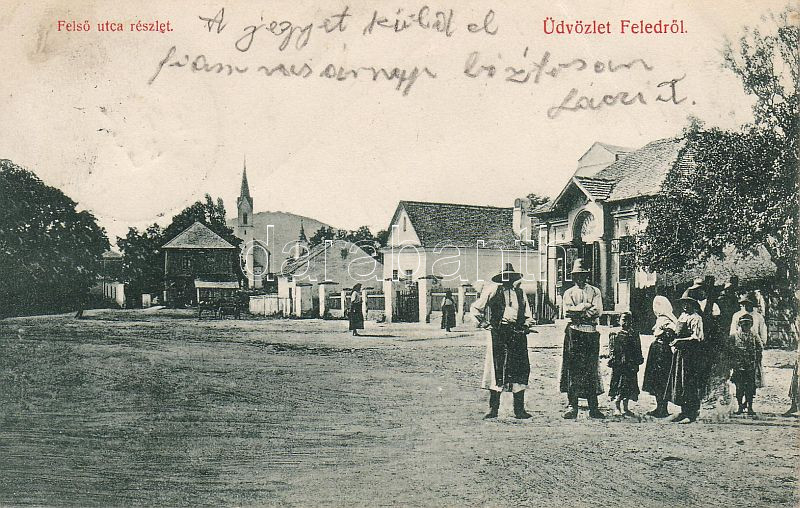 Felső utca részlet.
Üdvözlet Feledről.
A jegyet küld el
fiam vasárnap biztosan
Laczi
Darabanth